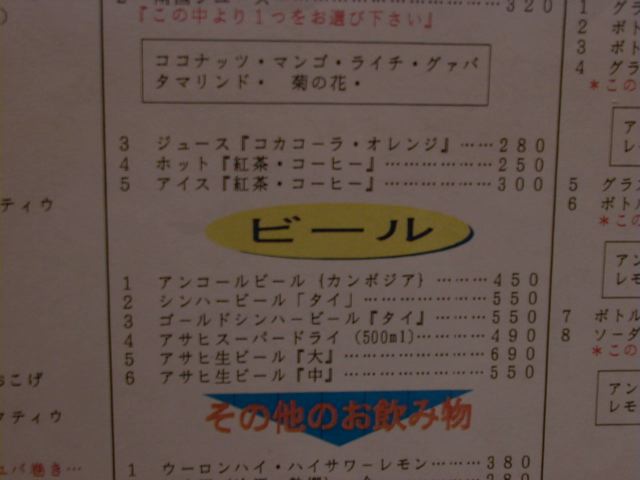 320
『この中より１つをお選び下さい』
ココナッツ・マンゴ・ライチ・グァバ
タマリンド・ 菊の花・
3 ジュース『コカコーラ・オレンジ』……280
4 ホット『紅茶・コーヒー』………………250
5 アイス『紅茶・コーヒー』………………300
ビール
1 アンコールビール {カンボジア} ………450
2 シンハービール「タイ」…………………550
3 ゴールドシンハービール『タイ』………550
4 アサヒスーパードライ (500ml)…………490
5 アサヒ生ビール『大』……………………690
6 アサヒ生ビール『中』……………………550
その他のお飲み物
1 ウーロンハイ・ハイサワーレモン………380
ティウ
おこげ
クティウ
巻き…
1 グラ
2 ボト
3 ボト
4 グラ
＊この
ア
レモ
5 グラ
6 ボトル
＊この
アン
レモ
7 ボトル
8 ソーダ
＊この
アン
レモ